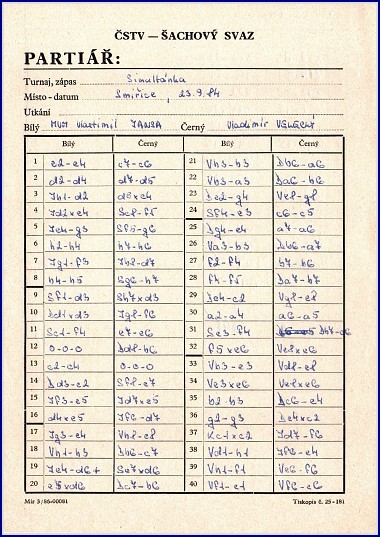 ČSTV — ŠACHOVÝ SVAZ
PARTIÁŘ:
Turnaj, zápas Simultánka
Místo - datum Smiřice, 23.9.84
Utkání
Bílý MVDT Vlastimil JANSA Černý Vladimír
Bílý Černý Bílý Černý
1 e2-e4 c7-c6 21 Vh3-h3 Db6-a6
2 d2-d4 d7-d5 22 Vh3-a3 Da6-b6
3 Jb1-d2 d5xe4 23 De2-g4 Ve8-g8
4 Jd2xe4 Sc8-f5 24 Sf4-e3 c6-c5
5 Je4-g3 Sf5-g6 25 Dg4-e4 a7-a6
6 h2-h4 h7-h6 26 Va3-b3 Db6-a7
7 Jg1-f3 Jb8-d7 27 f2-f4 b7-b6
8 h4-h5 Sg6-h7 28 f4-f5 Da7-b7
9 Sf1-d3 Sh7xd3 29 De4-c2 Vg8-e8
10 Dd1xd3 Jg8-f6 30 a2-a4 a6-a5
11 Sc1-f4 e7-e6 31 Se3-f4 Db7-c6
12 0-0-0 Dd8-b6 32 f5xe6 Ve8xe6
13 c2-c4 0-0-0 33 Vb3-e3 Vd8-e8
14 Dd3-e2 Sf8-e7 34 Ve3xe6 Ve8xe6
15 Jf3-e5 Jd7xe5 35 b2-b3 Dc6-e4
16 d4xe5 Jf6-d7 36 g2-g3 De4xc2
17 Jg3-e4 Vh8-e8 37 Kc1xc2 Jd7-f6
18 Vh1-h3 Db6-c7 38 Vd1-h1 Jf6-e4
19 Je4-d6+ Se7xd6 39 Vh1-f1 Ve6-f6
20 e5xd6 Dc7-b6 40 Vf1-e1 Vf6-e6
Mír 3/86-00081 Tiskopis č. 25-181